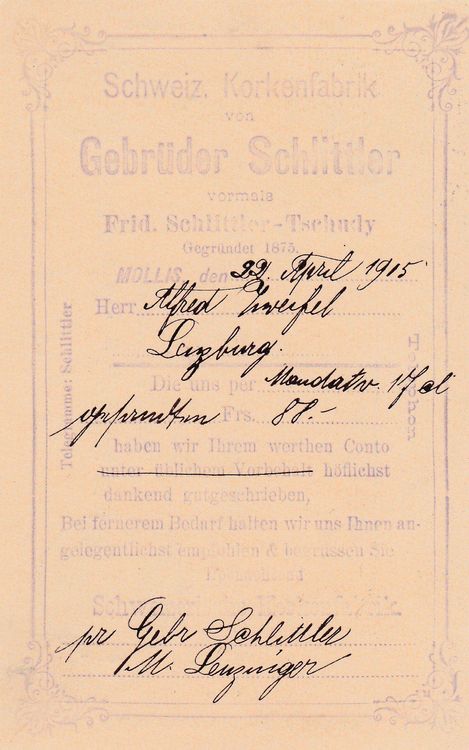 Schweiz. Korkenfabrik
von
Gebrüder Schlittler
vormals
Frid. Schlittler-Tschudy
Gegründet 1875.
MOLLIS, den 22. April 1915
Herr Alfred Zweifel
Lenzburg.
Die uns per Mandatv. 17 ct
gesandten Frs. 88.-
haben wir Ihrem werthen Conto
unter üblichem Vorbehalt höflichst
dankend gutgeschrieben,
Bei fernerem Bedarf halten wir uns Ihnen an-
gelegentlichst empfohlen & begrüssen Sie
Hochachtend
pr Gebr Schlittler
M. Lenzinger
Telegramme: Schlittler
Telephon